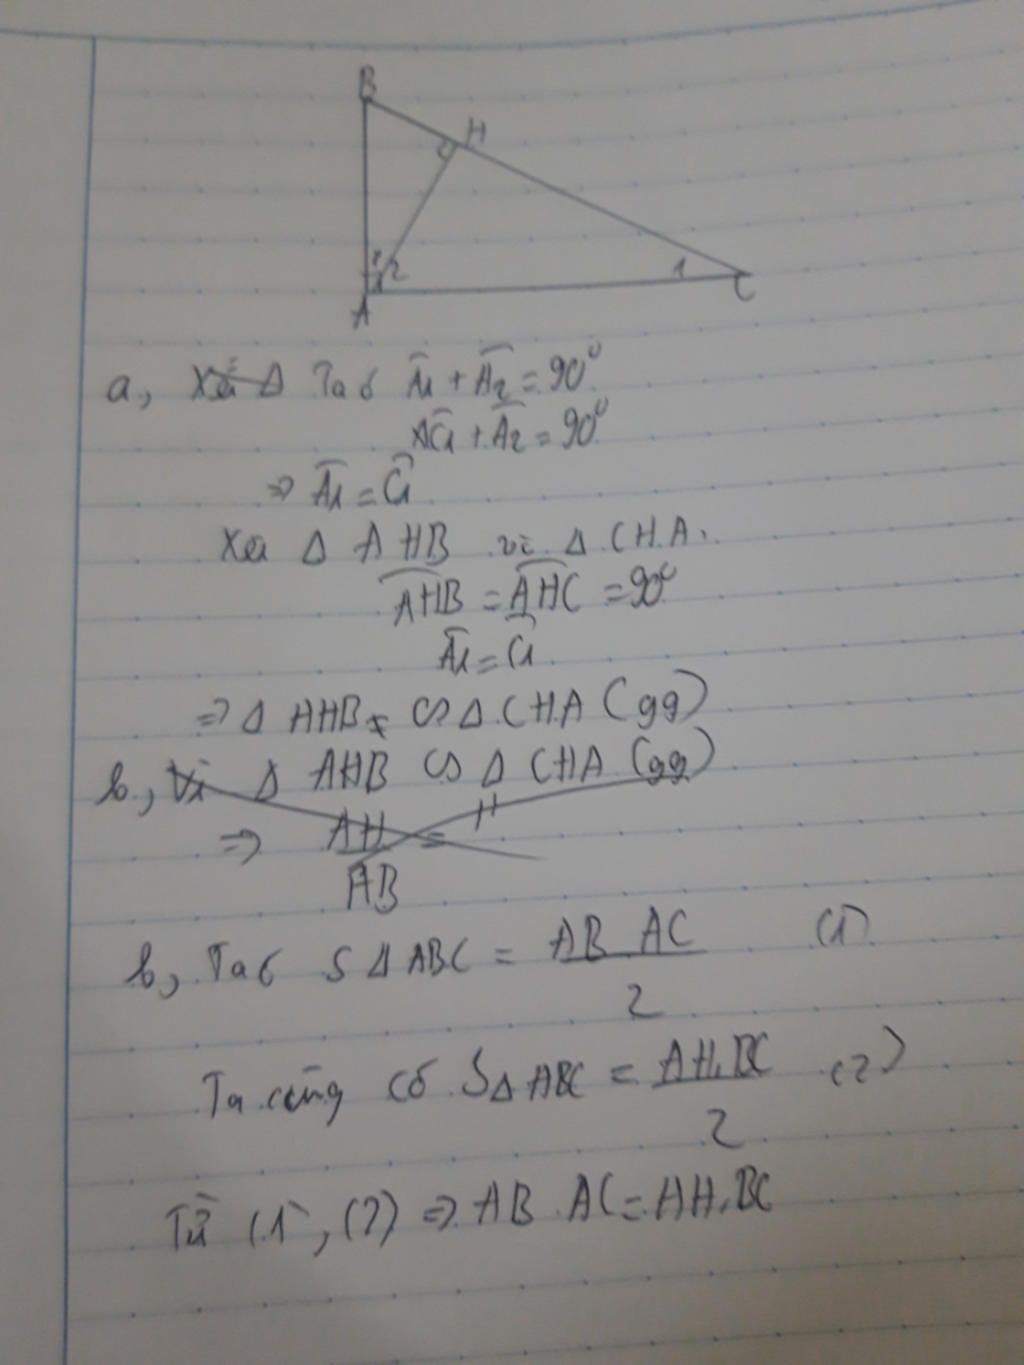 B
H
1 2
1
A
C
a, Xét Δ Ta có Â1 + Â2 = 90°
Ĉ1 + Â2 = 90°
=> Â1 = Ĉ1
Xét Δ AHB và Δ CHA.
AHB = AHC = 90°
Â1 = Ĉ1
=> Δ AHB ∽ Δ CHA (gg)
b, Vì Δ AHB ∽ Δ CHA (gg)
=> AH/AB = H
b, Ta có SΔABC = AB AC/2 (1)
Ta cũng có SΔABC = AH.BC/2 (2)
Từ (1), (2) => AB. AC = AH.BC